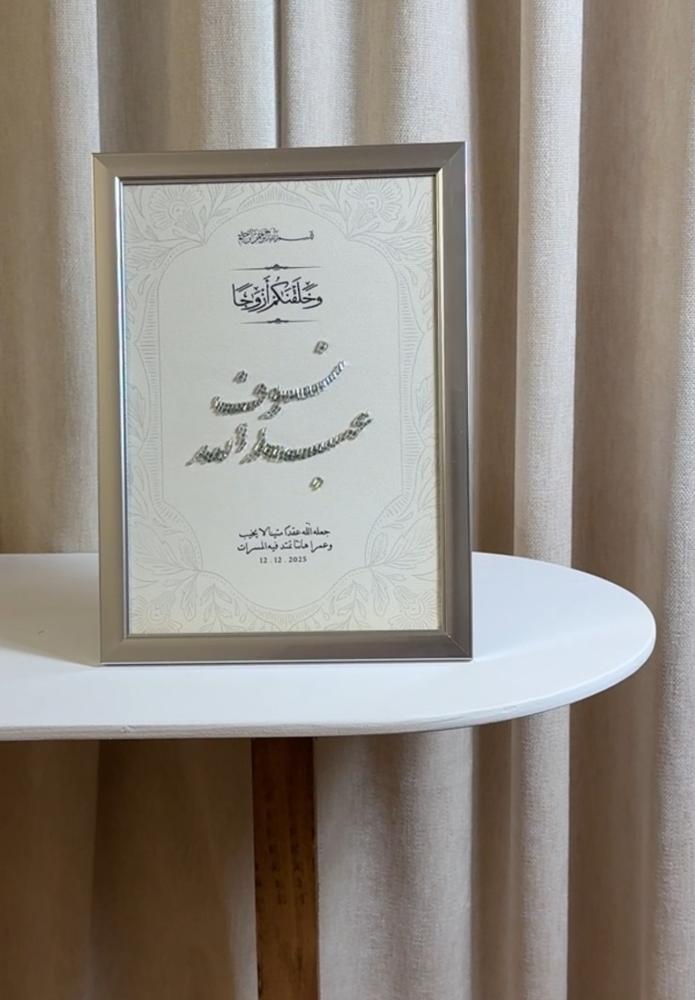 بسم الله الرحمن الرحيم
وَخَلَقْنَكُمْ أَزْوَجًا
نوف
عبدالله
جعله الله عقدًا متينا لا يخيب
وعمرا هانئا تمتد فيه المسرات
12 . 12 . 2025